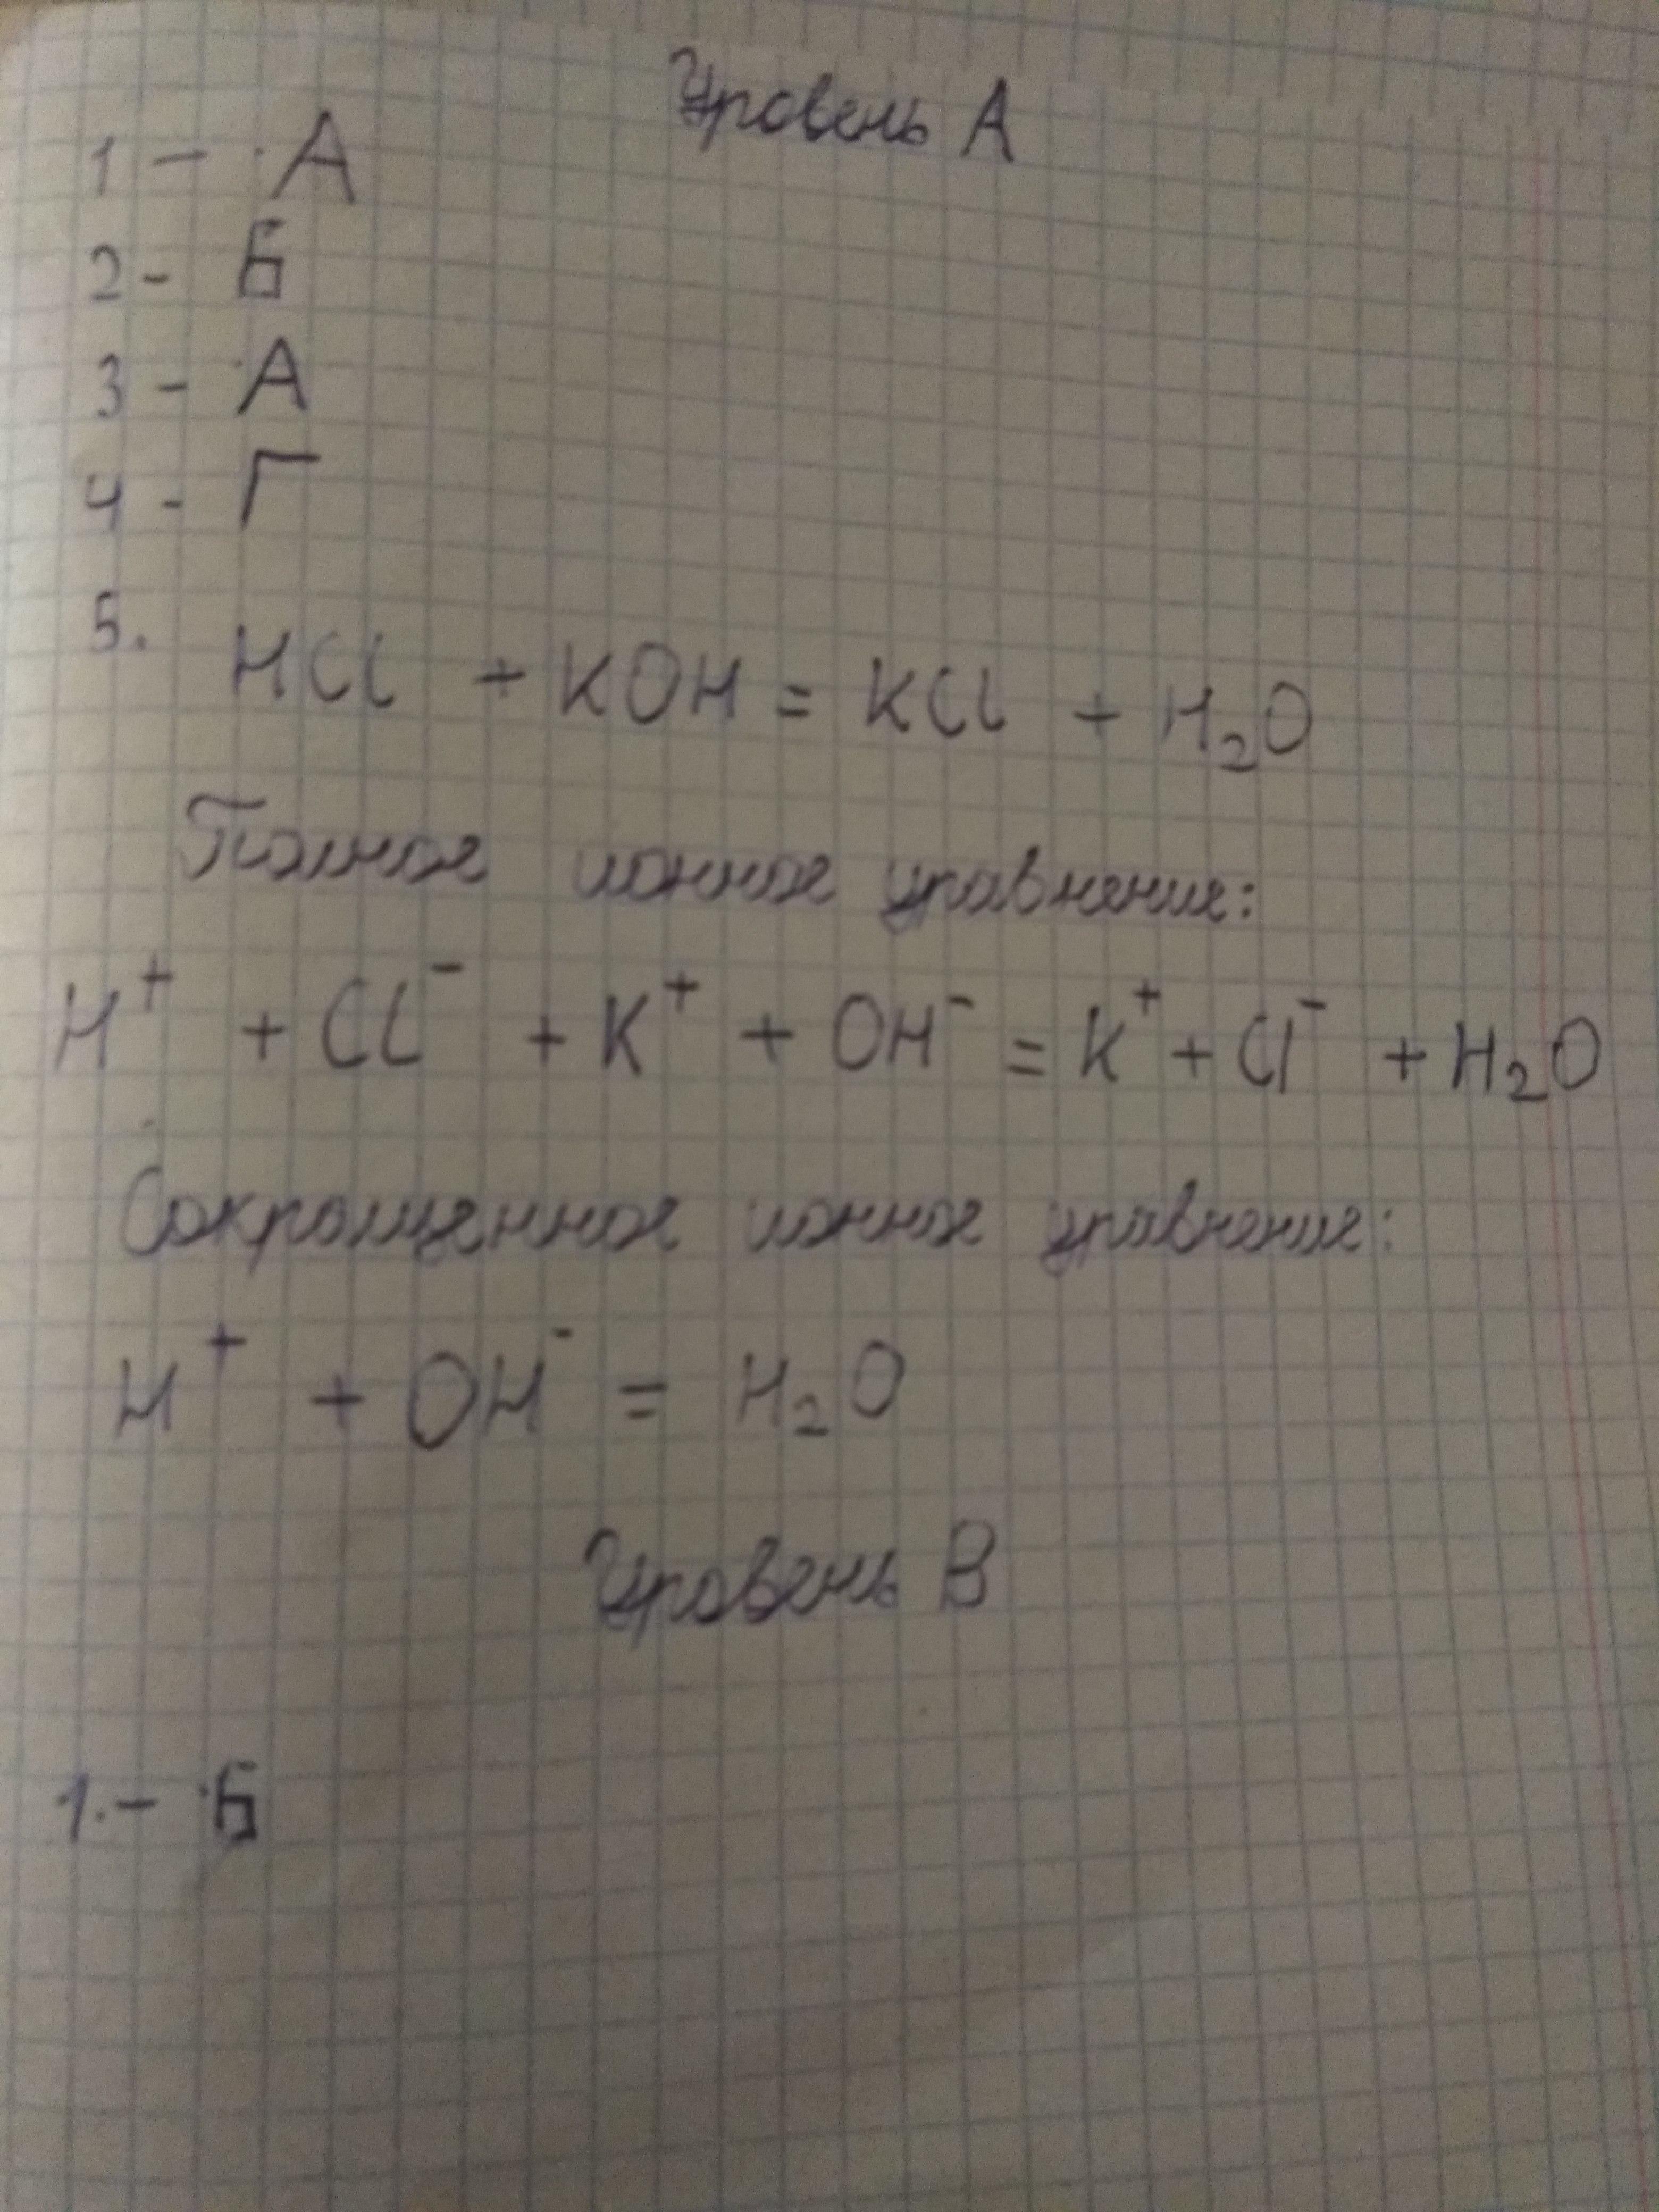 Уровень А
1 - А
2 - Б
3 - А
4 - Г
5.
HCl + KOH = KCl + H₂O
Полное ионное уравнение:
H⁺ + Cl⁻ + K⁺ + OH⁻ = K⁺ + Cl⁻ + H₂O
Сокращенное ионное уравнение:
H⁺ + OH⁻ = H₂O
Уровень В
1. - Б